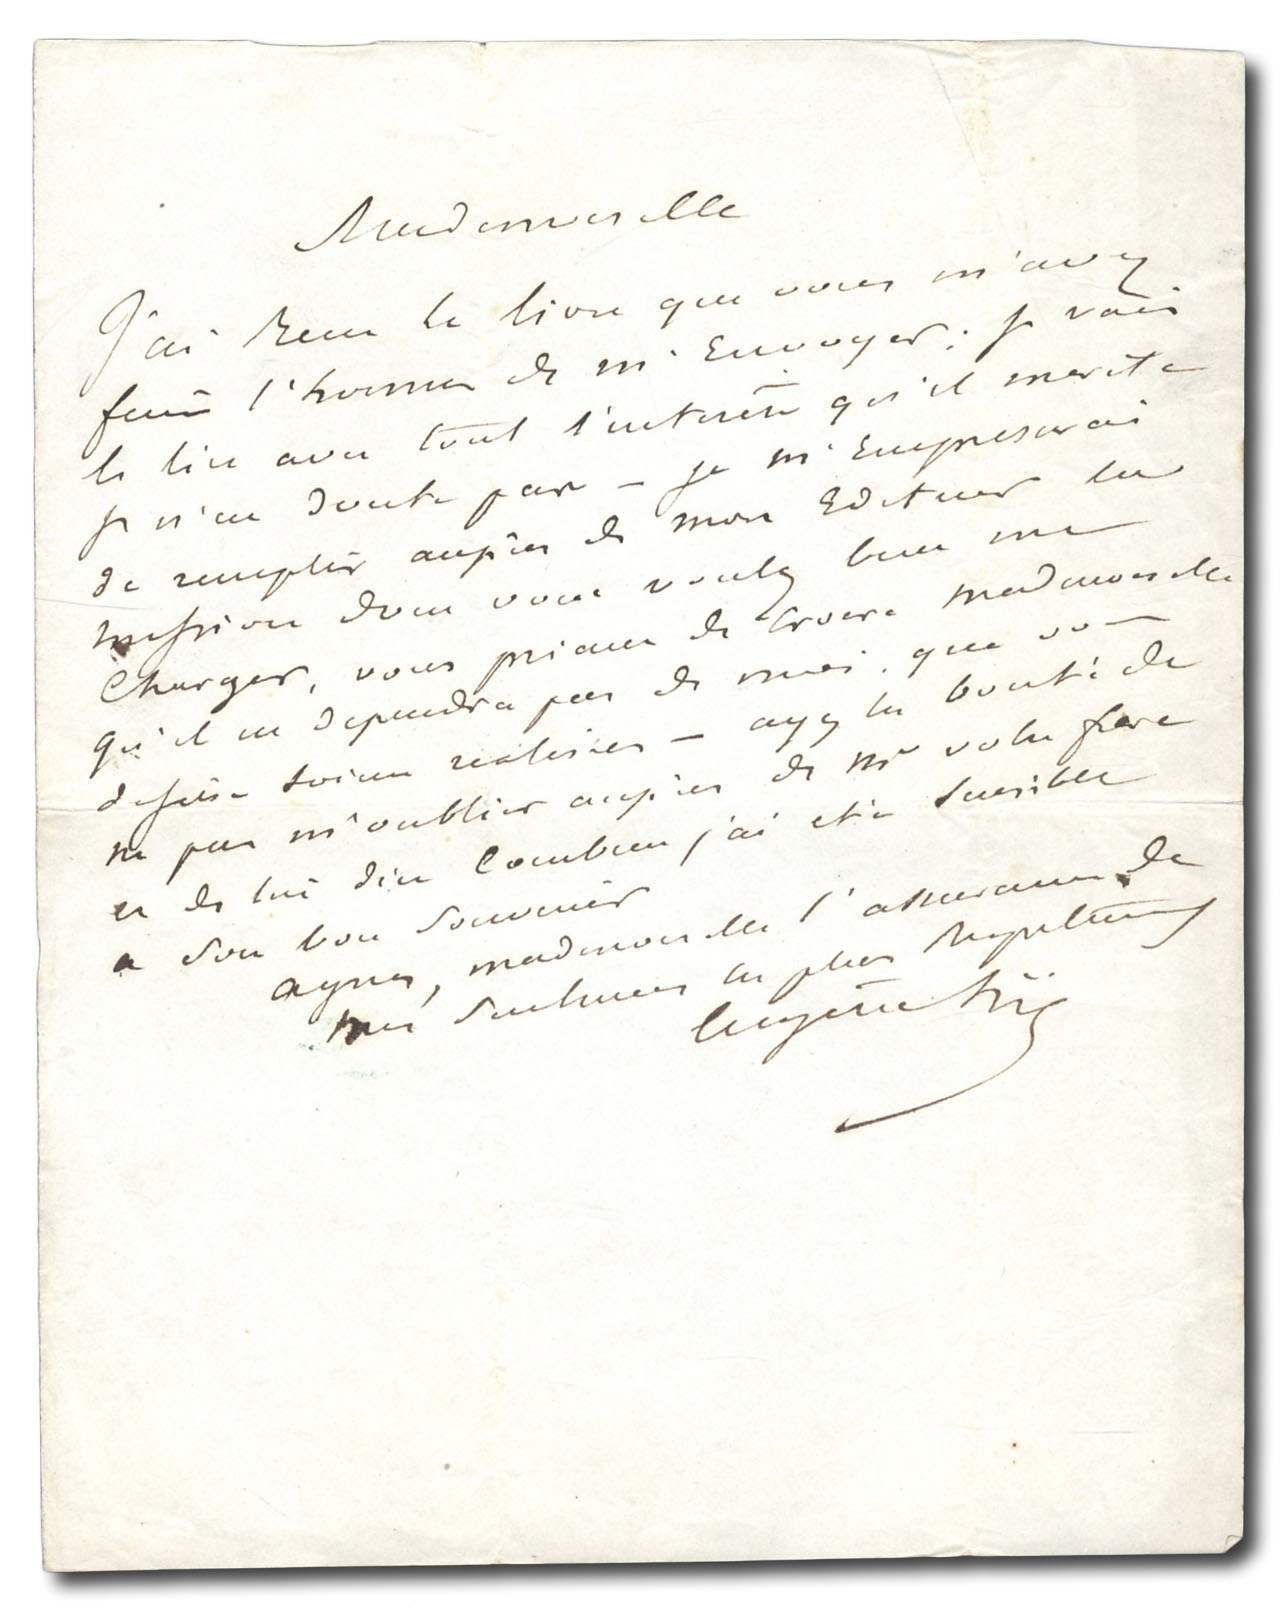 Mademoiselle
J'ai recu le livre que vous m'avez
fait l'honneur de m'Envoyer; je vais
le lire avec tout l'intérêt qu'il merite
je n'en doute pas — je m'Empresserai
de remplir auprès de mon Editeur la
mission dont vous voulez bien me
Charger, vous priant de Croire mademoiselle
qu'il ne dependra pas de moi que vos
desirs soient realisés — ayez la bonté de
ne pas m'oublier auprès de Mr votre frere
et de lui dire Combien j'ai été sensible
a son bon souvenir
agreez, mademoiselle l'assurance de
mes sentiments les plus respectueux
Eugène Süe